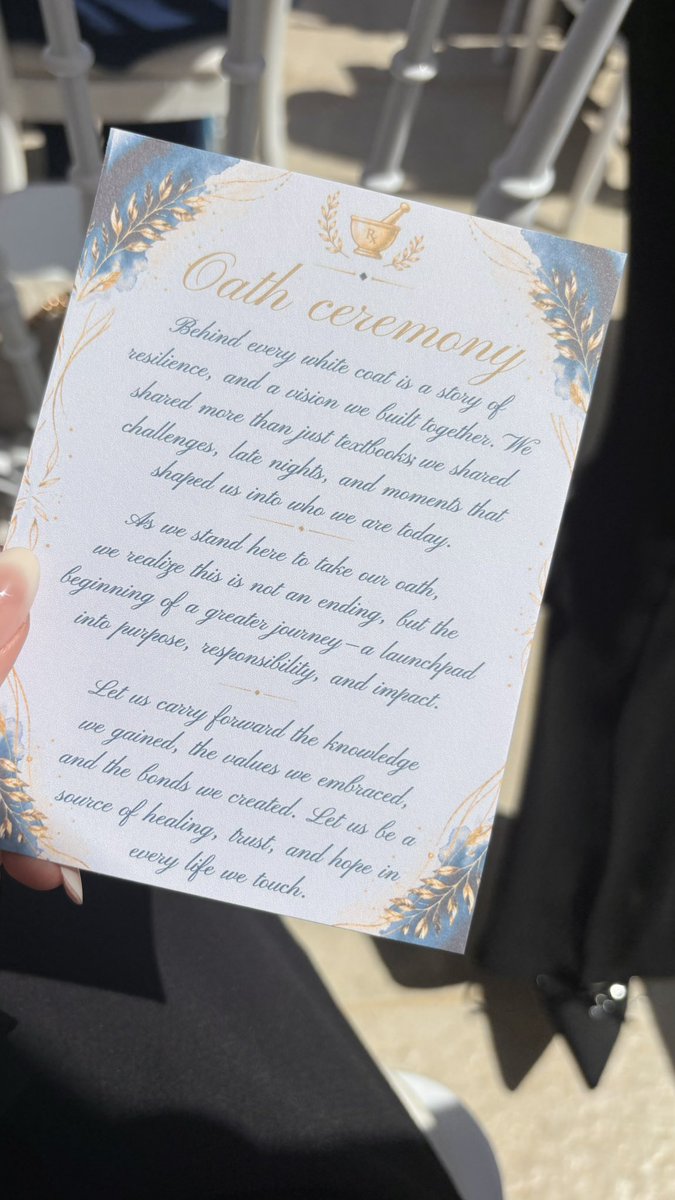 Rx
Oath ceremony
Behind every white coat is a story of
resilience, and a vision we built together. We
shared more than just textbooks; we shared
challenges, late nights, and moments that
shaped us into who we are today.
As we stand here to take our oath,
we realize this is not an ending, but the
beginning of a greater journey—a launchpad
into purpose, responsibility, and impact.
Let us carry forward the knowledge
we gained, the values we embraced,
and the bonds we created. Let us be a
source of healing, trust, and hope in
every life we touch.